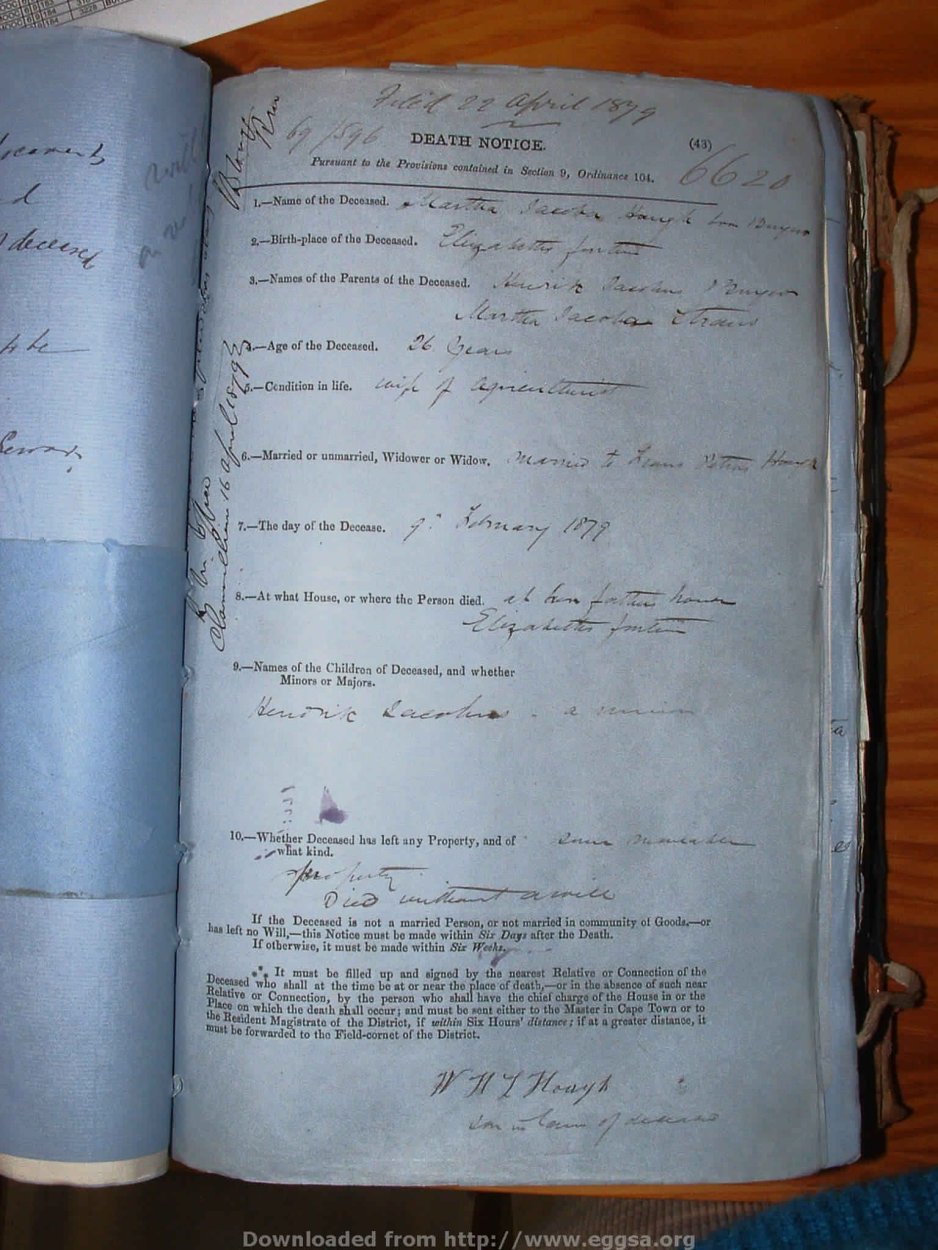 Filed 22 April 1879
69/7896
DEATH NOTICE. (43)
Pursuant to the Provisions contained in Section 9, Ordinance 104.
6620
1.—Name of the Deceased. Martha Jacoba Hough born
2.—Birth-place of the Deceased. Elizabeths fontein
3.—Names of the Parents of the Deceased. Hendrik Jacobus
Martha Jacoba
4.—Age of the Deceased. 26 Years
5.—Condition in life. wife of Agriculturist
6.—Married or unmarried, Widower or Widow. Married to Petrus Hough
7.—The day of the Decease. 9th February 1879
8.—At what House, or where the Person died. at her fathers house
Elizabeths fontein
9.—Names of the Children of Deceased, and whether
Minors or Majors.
Hendrik Jacobus - a minor
10.—Whether Deceased has left any Property, and of some
what kind.
property
Died without a will
If the Deceased is not a married Person, or not married in community of Goods,—or
has left no Will,—this Notice must be made within Six Days after the Death.
If otherwise, it must be made within Six Weeks.
*** It must be filled up and signed by the nearest Relative or Connection of the
Deceased who shall at the time be at or near the place of death,—or in the absence of such near
Relative or Connection, by the person who shall have the chief charge of the House in or the
Place on which the death shall occur; and must be sent either to the Master in Cape Town or to
the Resident Magistrate of the District, if within Six Hours' distance; if at a greater distance, it
must be forwarded to the Field-cornet of the District.
W H L Hough
son in law of deceased
Clanwilliam 16 April 1879
deceased
Downloaded from http://www.eggsa.org